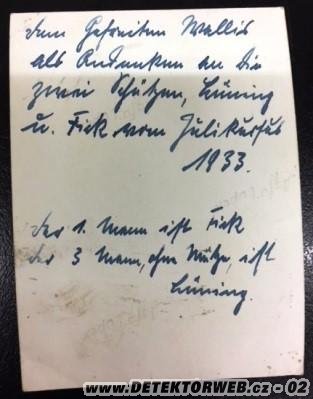 dem Gefreiten Wallis
als Andenken an die
zwei Schützen, Lüning
u. Fick vom Julikursus
1933.
der 1. Mann ist Fick
der 3 Mann, ohn Mütze, ist
Lüning.
www.DETEKTORWEB.cz - 02